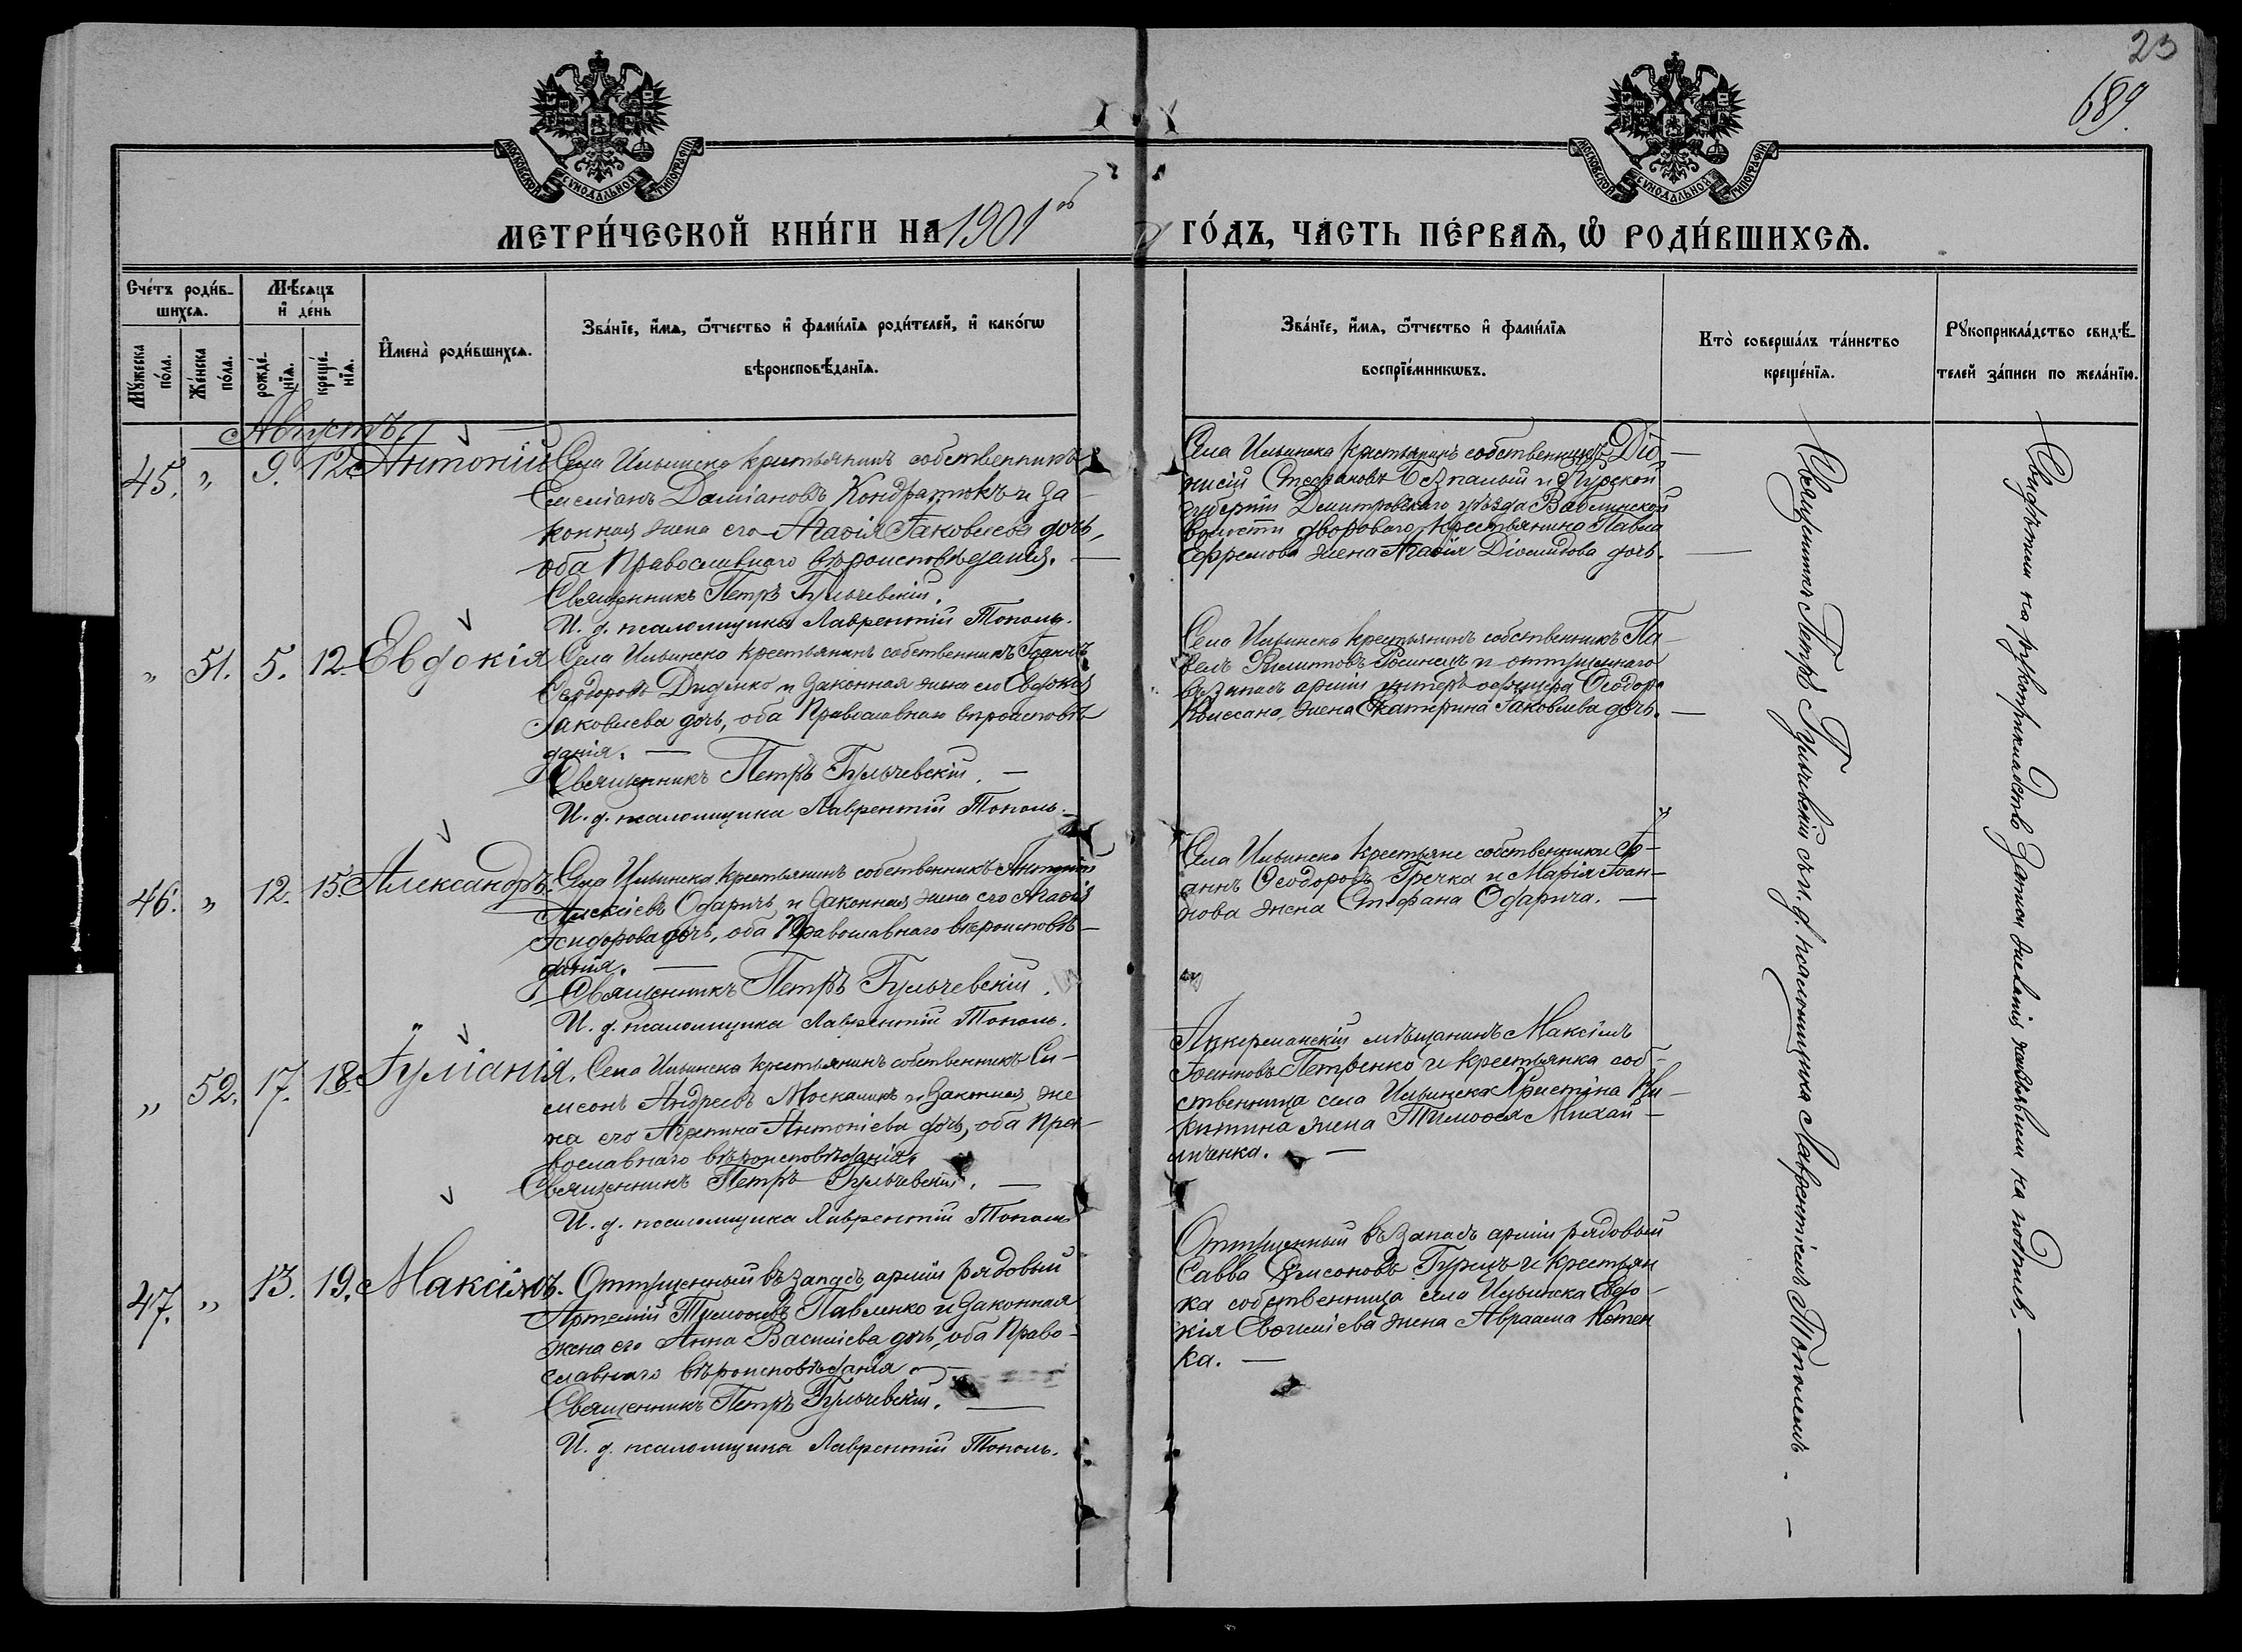 23
689.
МОСКОВСКОЙ СѴНОДАЛЬНОЙ ТИПОГРАФІИ
МОСКОВСКОЙ СѴНОДАЛЬНОЙ ТИПОГРАФІИ
МЕТРИ́ЧЕСКОЙ КНИ́ГИ НА 1901й
ГО́ДЪ, ЧАСТЬ ПЕ́РВАѦ, Ѡ РОДИ́ВШИХСѦ.
Сче́тъ роди́в-
шихсѧ.
Мꙋ́жеска по́ла.
Же́нска по́ла.
Мѣ́сѧцъ
и҆ де́нь
рожде́-
нїѧ.
креще́-
нїѧ.
И҆мена̀ роди́вшихсѧ.
Зва́нїе, и҆́мѧ, ѻ҆́тчество и҆ фами́лїѧ роди́телей, и҆ како́гѡ
вѣроисповѣ́данїѧ.
Зва́нїе, и҆́мѧ, ѻ҆́тчество и҆ фами́лїѧ
воспрїе́мникѡвъ.
Кто̀ соверша́лъ та́инство
креще́нїѧ.
Рꙋкоприкла́дство свидѣ́-
телей за́писи по жела́нїю.
Августъ
45. „ 9. 12. Антоній
Села Ильинска крестьянинъ собственникъ
Емеліанъ Даміановъ Кондратюкъ и за-
конная жена его Агаѳія Іаковлева дочь,
оба Православнаго вѣроисповѣданія. —
Священникъ Петръ Гульчевскій.
И. д. псаломщика Лаврентій Тополь.
Села Ильинска крестьянинъ собственникъ Діо-
нисій Стефановъ Безпалый и Курской
губерніи Дмитровскаго уѣзда
волости дворового крестьянина Павла
Ефремова жена Агаѳія Діомидова дочь. —
„ 51. 5. 12. Евдокія
Села Ильинска крестьянинъ собственникъ Іоаннъ
Ѳеодоровъ Диденко и законная жена его Евдокія
Іаковлева дочь, оба Православнаго вѣроисповѣ-
данія. —
Священникъ Петръ Гульчевскій. —
И. д. псаломщика Лаврентій Тополь. —
Села Ильинска крестьянинъ собственникъ Па-
велъ и отпущеннаго
въ запасъ арміи унтеръ офицера Ѳеодора
жена Екатерина Іаковлева дочь. —
46. „ 12. 15. Александръ.
Села Ильинска крестьянинъ собственникъ Антоній
Алексіевъ Одаричъ и законная жена его Агаѳія
Исидорова дочь, оба Православнаго вѣроисповѣ-
данія. —
Священникъ Петръ Гульчевскій.
И. д. псаломщика Лаврентій Тополь.
Села Ильинска крестьяне собственники Іо-
аннъ Ѳеодоровъ Гречка и Марія Іоан-
нова жена Стефана Одарича. —
„ 52. 17. 18. Іуліанія.
Села Ильинска крестьянинъ собственникъ Си-
меонъ Андреевъ Москаликъ и законная же
на его Агрипина Антоніева дочь, оба Пра-
вославнаго вѣроисповѣданія.
Священникъ Петръ Гульчевскій. —
И. д. псаломщика Лаврентій Тополь
Аккерманскій мѣщанинъ Максимъ
Іоанновъ Петренко и крестьянка соб-
ственница села Ильинска Христина Ни-
китина жена Тимоѳея Михай-
личенка. —
47. „ 13. 19. Максимъ.
Отпущенный въ запасъ арміи рядовый
Артемій Тимоѳеевъ Павленко и законная
жена его Анна Василіева дочь, оба Право-
славнаго вѣроисповѣданія. —
Священникъ Петръ Гульчевскій. —
И. д. псаломщика Лаврентій Тополь.
Отпущенный въ запасъ арміи рядовый
Савва Симеоновъ Гурецъ и крестьян
ка собственница села Ильинска Евдо-
кія Евѳиміева жена Авраама Котен
ка. —
Священникъ Петръ Гульчевскій съ и. д. псаломщика Лаврентіемъ Тополемъ. —
Свидѣтели на рукоприкладство записи желанія заявлявшихъ не было. —